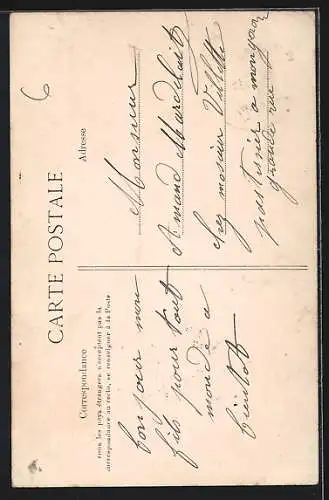 6
CARTE POSTALE
Correspondance
Tous les pays étrangers n'acceptent pas la
correspondance au recto, se renseigner à la Poste
bonjour mon
fils pour tout
monde a
bientot
Adresse
Monsieur
Amand
chez mosieur Villette
pastisier a
grande rue